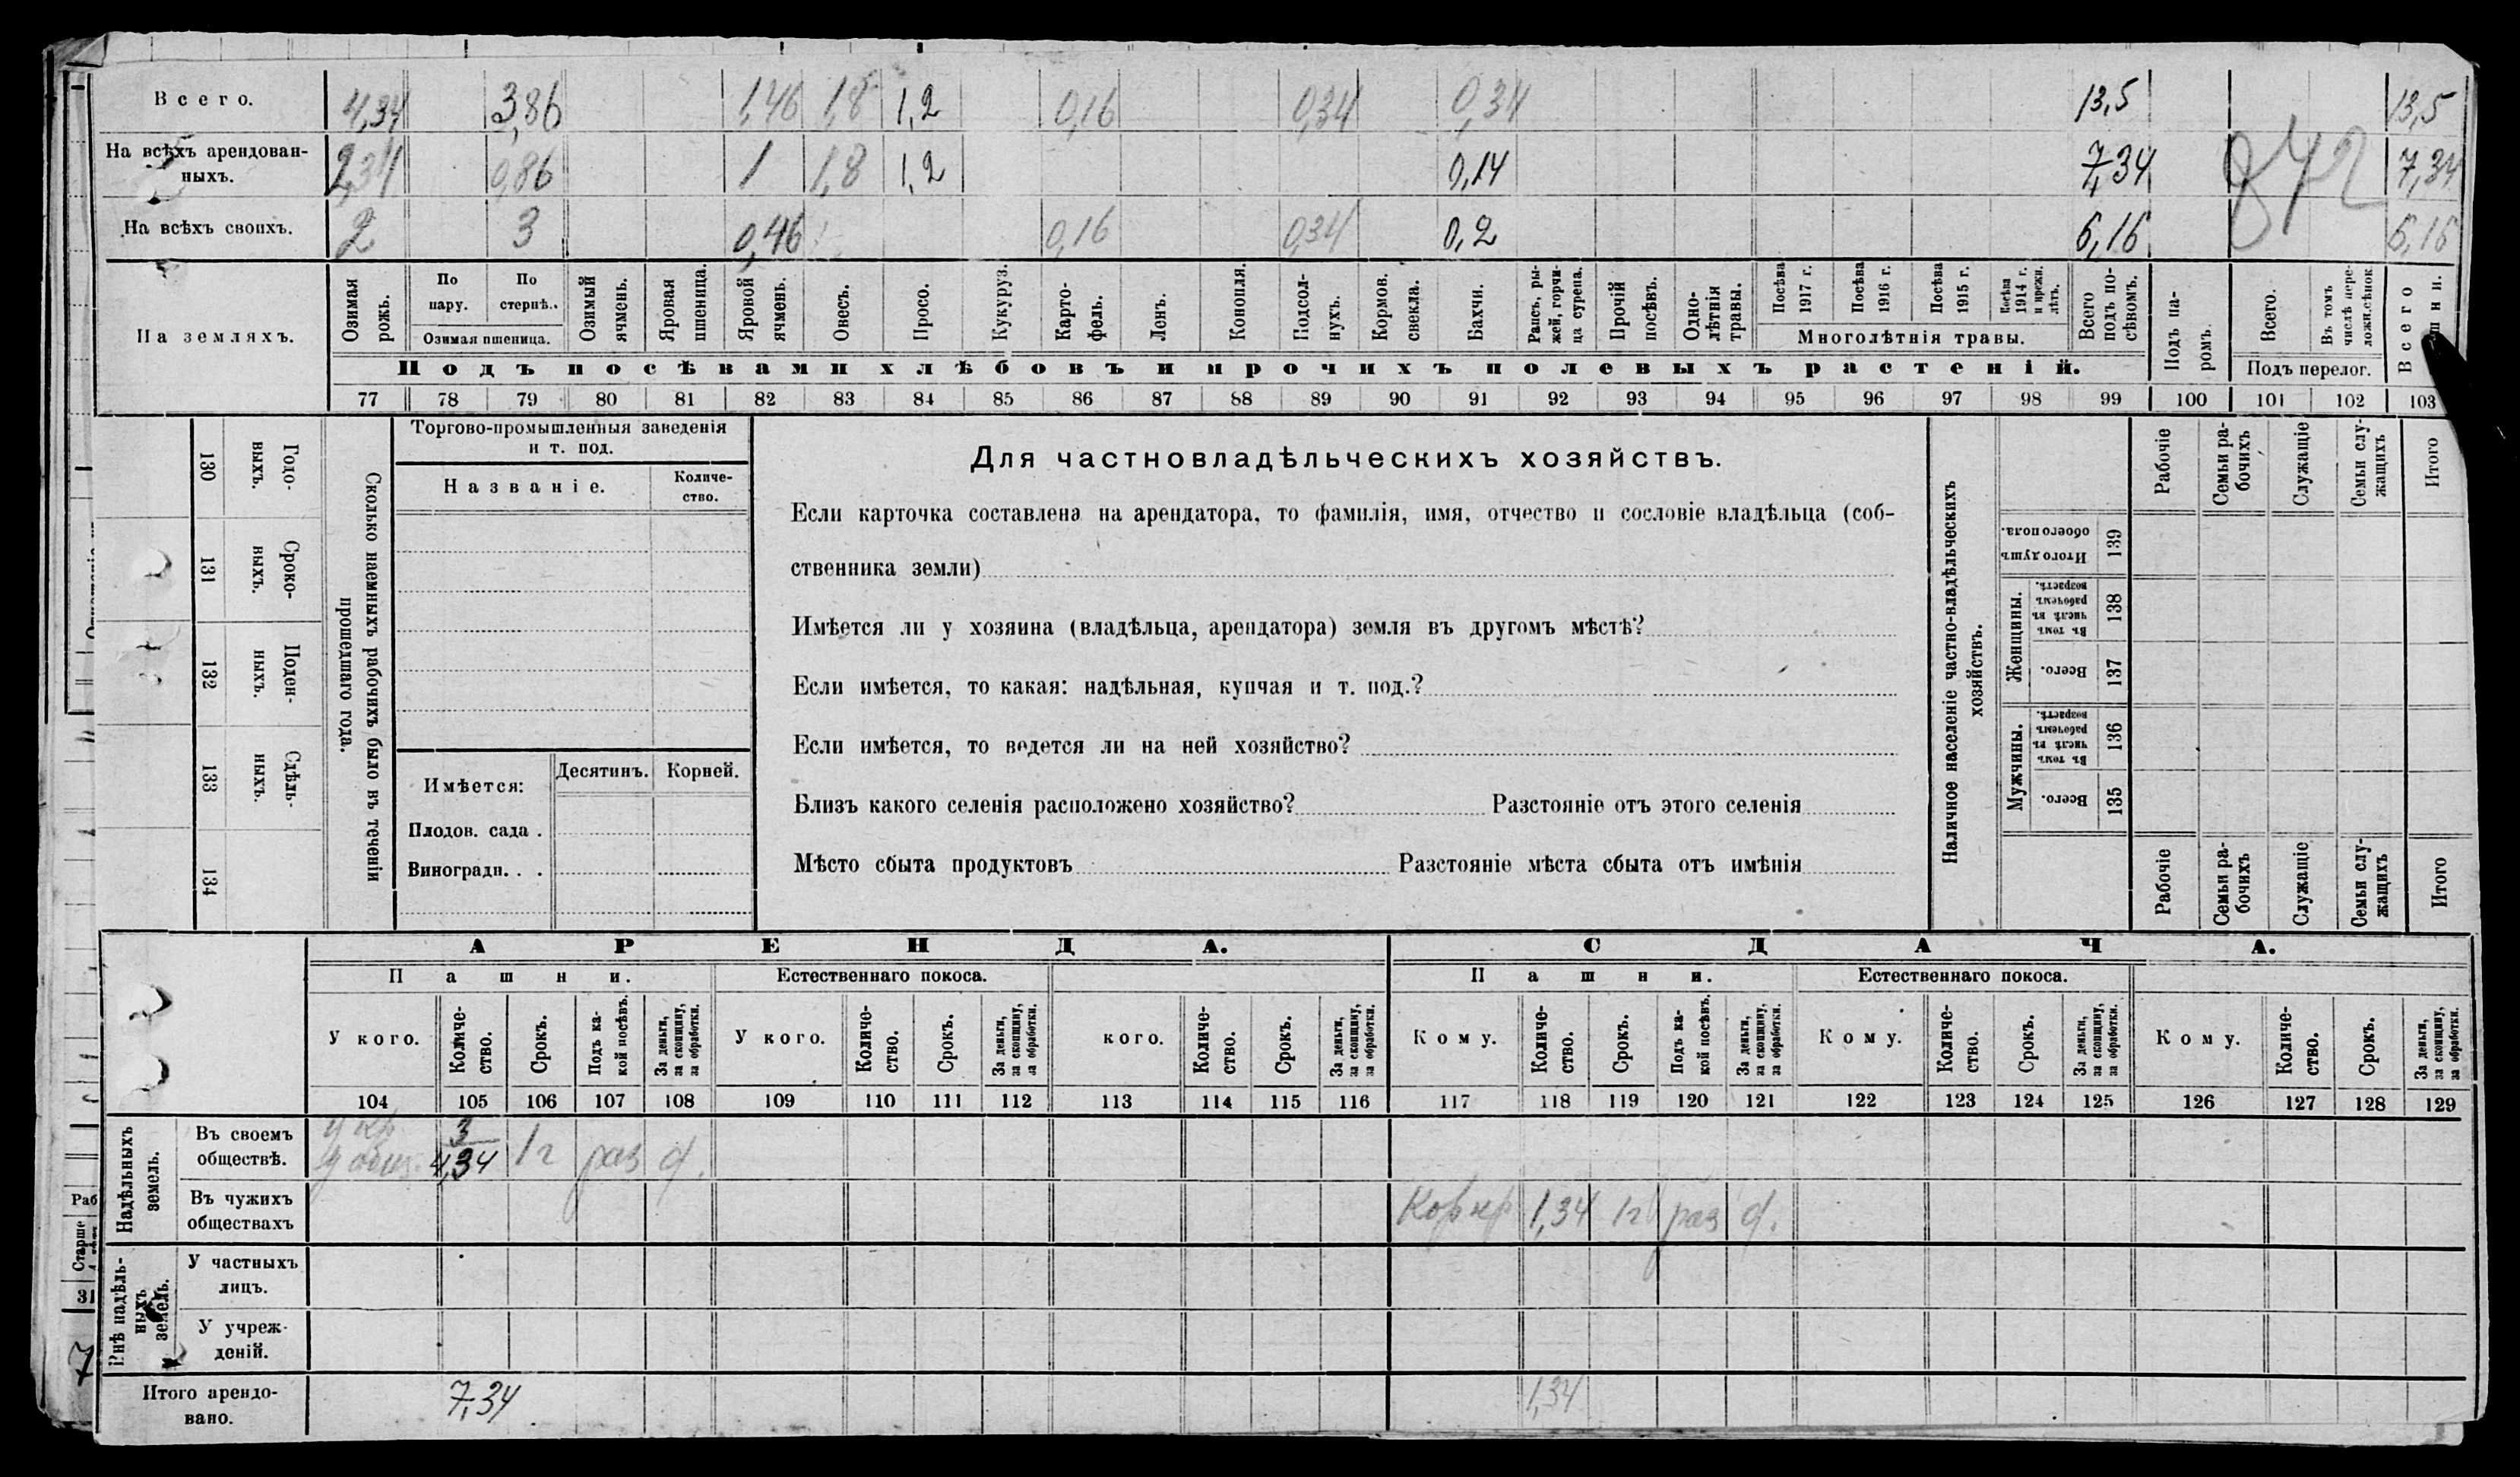 Всего. 4,34 3,86 1,46 1,8 1,2 0,16 0,34 0,34 13,5 13,5
На всѣхъ арендован-
ныхъ. 2,34 0,86 1 1,8 1,2 0,14 7,34 7,34
842
На всѣхъ своихъ. 2 3 0,46 0,16 0,34 0,2 6,16 6,16
На земляхъ.
Озимая рожь.
По пару.
По стернѣ.
Озимая пшеница.
Озимый ячмень.
Яровая пшеница.
Яровой ячмень.
Овесъ.
Просо.
Кукуруз.
Карто-
фель.
Ленъ.
Конопля.
Подсол-
нухъ.
Кормов. свекла.
Бахчи.
Рапсъ, ры-
жей, горчи-
ца сурепа.
Прочій посѣвъ.
Одно-
лѣтнія травы.
Посѣва 1917 г.
Посѣва 1916 г.
Посѣва 1915 г.
Посѣва 1914 г. и прежн. лѣтъ.
Многолѣтнія травы.
Всего подъ по-
сѣвомъ.
Подъ па-
ромъ.
Всего.
Въ томъ числѣ пере-
ложн. сѣнок.
Подъ перелог.
Всего
Подъ посѣвами хлѣбовъ и прочихъ полевыхъ растеній.
77 78 79 80 81 82 83 84 85 86 87 88 89 90 91 92 93 94 95 96 97 98 99 100 101 102 103
130 Годо-
ныхъ.
131 Сроко-
ныхъ.
132 Поден-
ныхъ.
133 Сдѣль-
ныхъ.
134
Сколько наемныхъ рабочихъ было въ теченіи
прошедшаго года.
Торгово-промышленныя заведенія
и т. под.
Названіе.
Количе-
ство.
Имѣется:
Десятинъ. Корней.
Плодов. сада .
Виноградн. . .
Для частновладѣльческихъ хозяйствъ.
Если карточка составлена на арендатора, то фамилія, имя, отчество и сословіе владѣльца (соб-
ственника земли)
Имѣется ли у хозяина (владѣльца, арендатора) земля въ другомъ мѣстѣ?
Если имѣется, то какая: надѣльная, купчая и т. под.?
Если имѣется, то ведется ли на ней хозяйство?
Близъ какого селенія расположено хозяйство? Разстояніе отъ этого селенія
Мѣсто сбыта продуктовъ Разстояніе мѣста сбыта отъ имѣнія
Наличное населеніе частно-владѣльческихъ
хозяйствъ.
Рабочіе
Семьи ра-
бочихъ
Служащіе
Семьи слу-
жащихъ
Итого
Итого душъ обоего пола. 139
Женщины.
Въ томъ числѣ въ рабочемъ возрастѣ. 138
Всего. 137
Мужчины.
Въ томъ числѣ въ рабочемъ возрастѣ. 136
Всего. 135
Рабочіе
Семьи ра-
бочихъ
Служащіе
Семьи слу-
жащихъ
Итого
АРЕНДА. СДАЧА.
Пашни. Естественнаго покоса. Пашни. Естественнаго покоса.
У кого.
Количе-
ство.
Срокъ.
Подъ ка-
кой посѣвъ.
За деньги, за скопщину, за обработки.
У кого.
Количе-
ство.
Срокъ.
За деньги, за скопщину, за обработки.
кого.
Количе-
ство.
Срокъ.
За деньги, за скопщину, за обработки.
Кому.
Количе-
ство.
Срокъ.
Подъ ка-
кой посѣвъ.
За деньги, за скопщину, за обработки.
Кому.
Количе-
ство.
Срокъ.
За деньги, за скопщину, за обработки.
Кому.
Количе-
ство.
Срокъ.
За деньги, за скопщину, за обработки.
104 105 106 107 108 109 110 111 112 113 114 115 116 117 118 119 120 121 122 123 124 125 126 127 128 129
Надѣльныхъ земель.
Въ своемъ у кр. 3
обществѣ. у общ. 4,34 1 г раз д.
Въ чужихъ
обществахъ Кор кр 1,34 1 г раз д.
Внѣ надѣль-
ныхъ земель.
У частныхъ
лицъ.
У учреж-
деній.
Итого арендо-
вано. 7,34 1,34
Раб
Старше
31
7